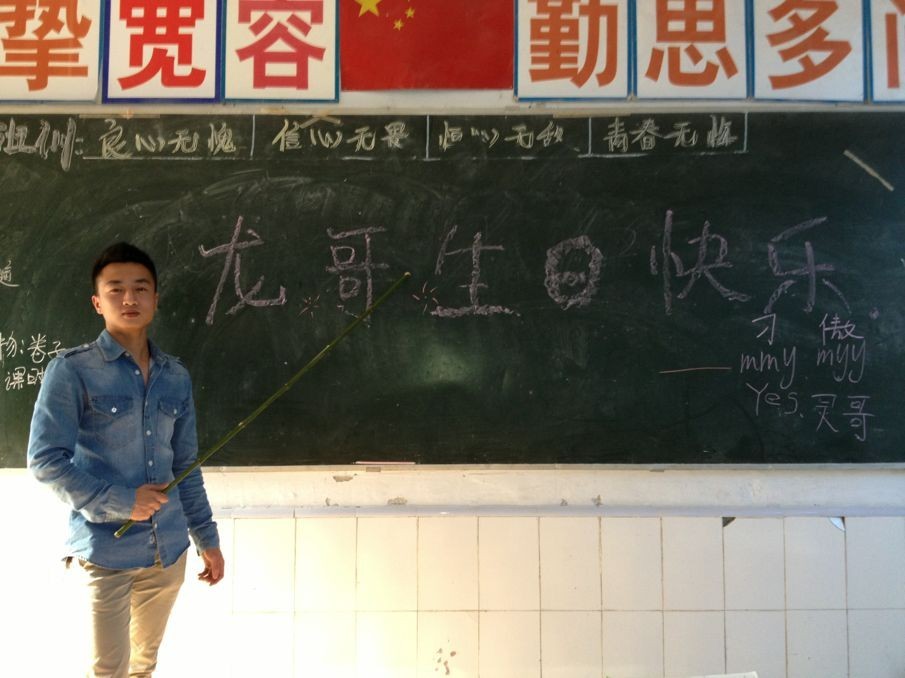 挚 宽容 勤思多
班训: 良心无愧 信心无畏 恒心无敌 青春无悔
龙哥生日快乐
物:卷子
课时
刁 傲
—— mmy myy
Yes、灵哥